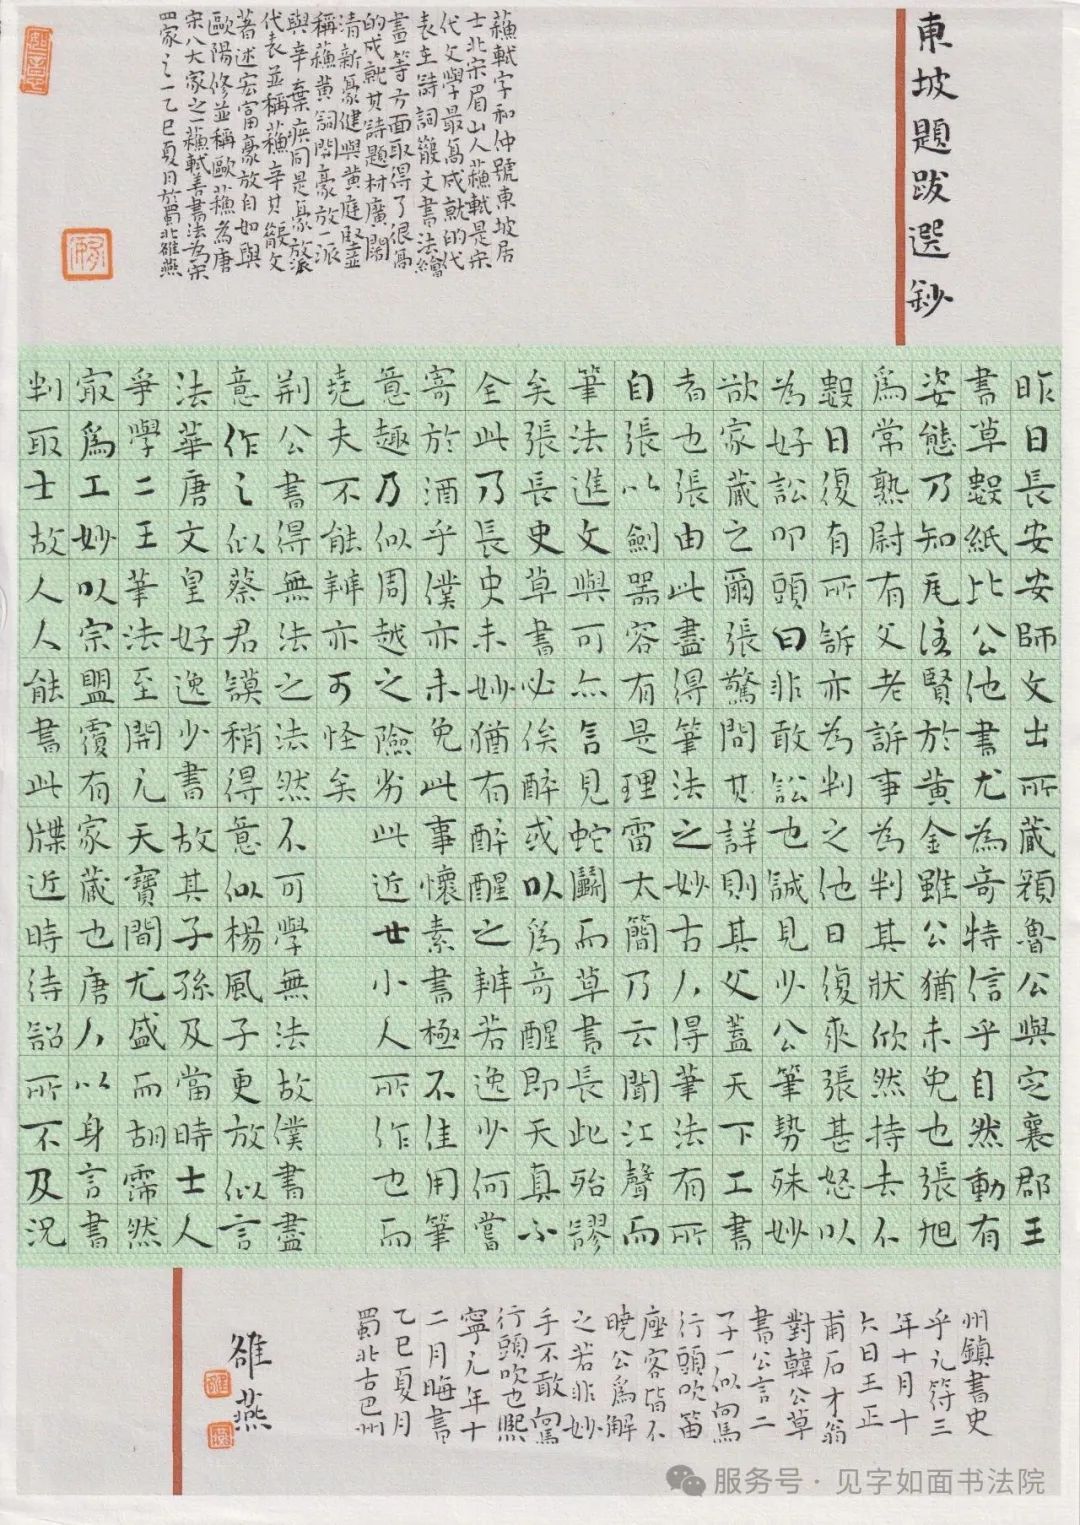 東坡題跋選鈔
蘇軾字和仲號東坡居
士北宋眉山人蘇軾是宋
代文學最高成就的代
表在詩詞散文書法繪
畫等方面取得了很高
的成就其詩題材廣闊
清新豪健與黃庭堅並
稱蘇黃詞開豪放一派
與辛棄疾同是豪放派
代表並稱蘇辛其散文
著述宏富豪放自如與
歐陽修並稱歐蘇為唐
宋八大家之一蘇軾善書法為宋
四家之一乙巳夏月於蜀北雒燕
昨日長安安師文出所藏顏魯公與定襄郡王
書草數紙比公他書尤為奇特信乎自然動有
姿態乃知瓦注賢於黃金雖公猶未免也張旭
為常熟尉有父老訴事為判其狀欣然持去不
數日復有所訴亦為判之他日復來張甚怒以
為好訟叩頭曰非敢訟也誠見少公筆勢殊妙
欲家藏之爾張驚問其詳則其父蓋天下工書
者也張由此盡得筆法之妙古人得筆法有所
自張以劍器容有是理雷太簡乃云聞江聲而
筆法進文與可亦言見蛇鬭而草書長此殆謬
矣張長史草書必俟醉或以為奇醒即天真不
全此乃長史未妙猶有醉醒之辨若逸少何嘗
寄於酒乎僕亦未免此事懷素書極不佳用筆
意趣乃似周越之險劣此近世小人所作也而
堯夫不能辨亦可怪矣
荊公書得無法之法然不可學無法故僕書盡
意作之似蔡君謨稍得意似楊風子更放似言
法華唐文皇好逸少書故其子孫及當時士人
爭學二王筆法至開元天寶間尤盛而胡霈然
最為工妙以宗盟覆有家藏也唐人以身言書
判取士故人人能書此牒近時待詔所不及況
州鎮書史
乎元符三
年十月十
六日王正
甫石才翁
對韓公草
書公言二
子一似向馬
行頭吹笛
座客皆不
曉公為解
之若非妙
手不敢向馬
行頭吹也熙
寧元年十
二月晦書
乙巳夏月
蜀北古巴州
雒燕
服务号·见字如面书法院